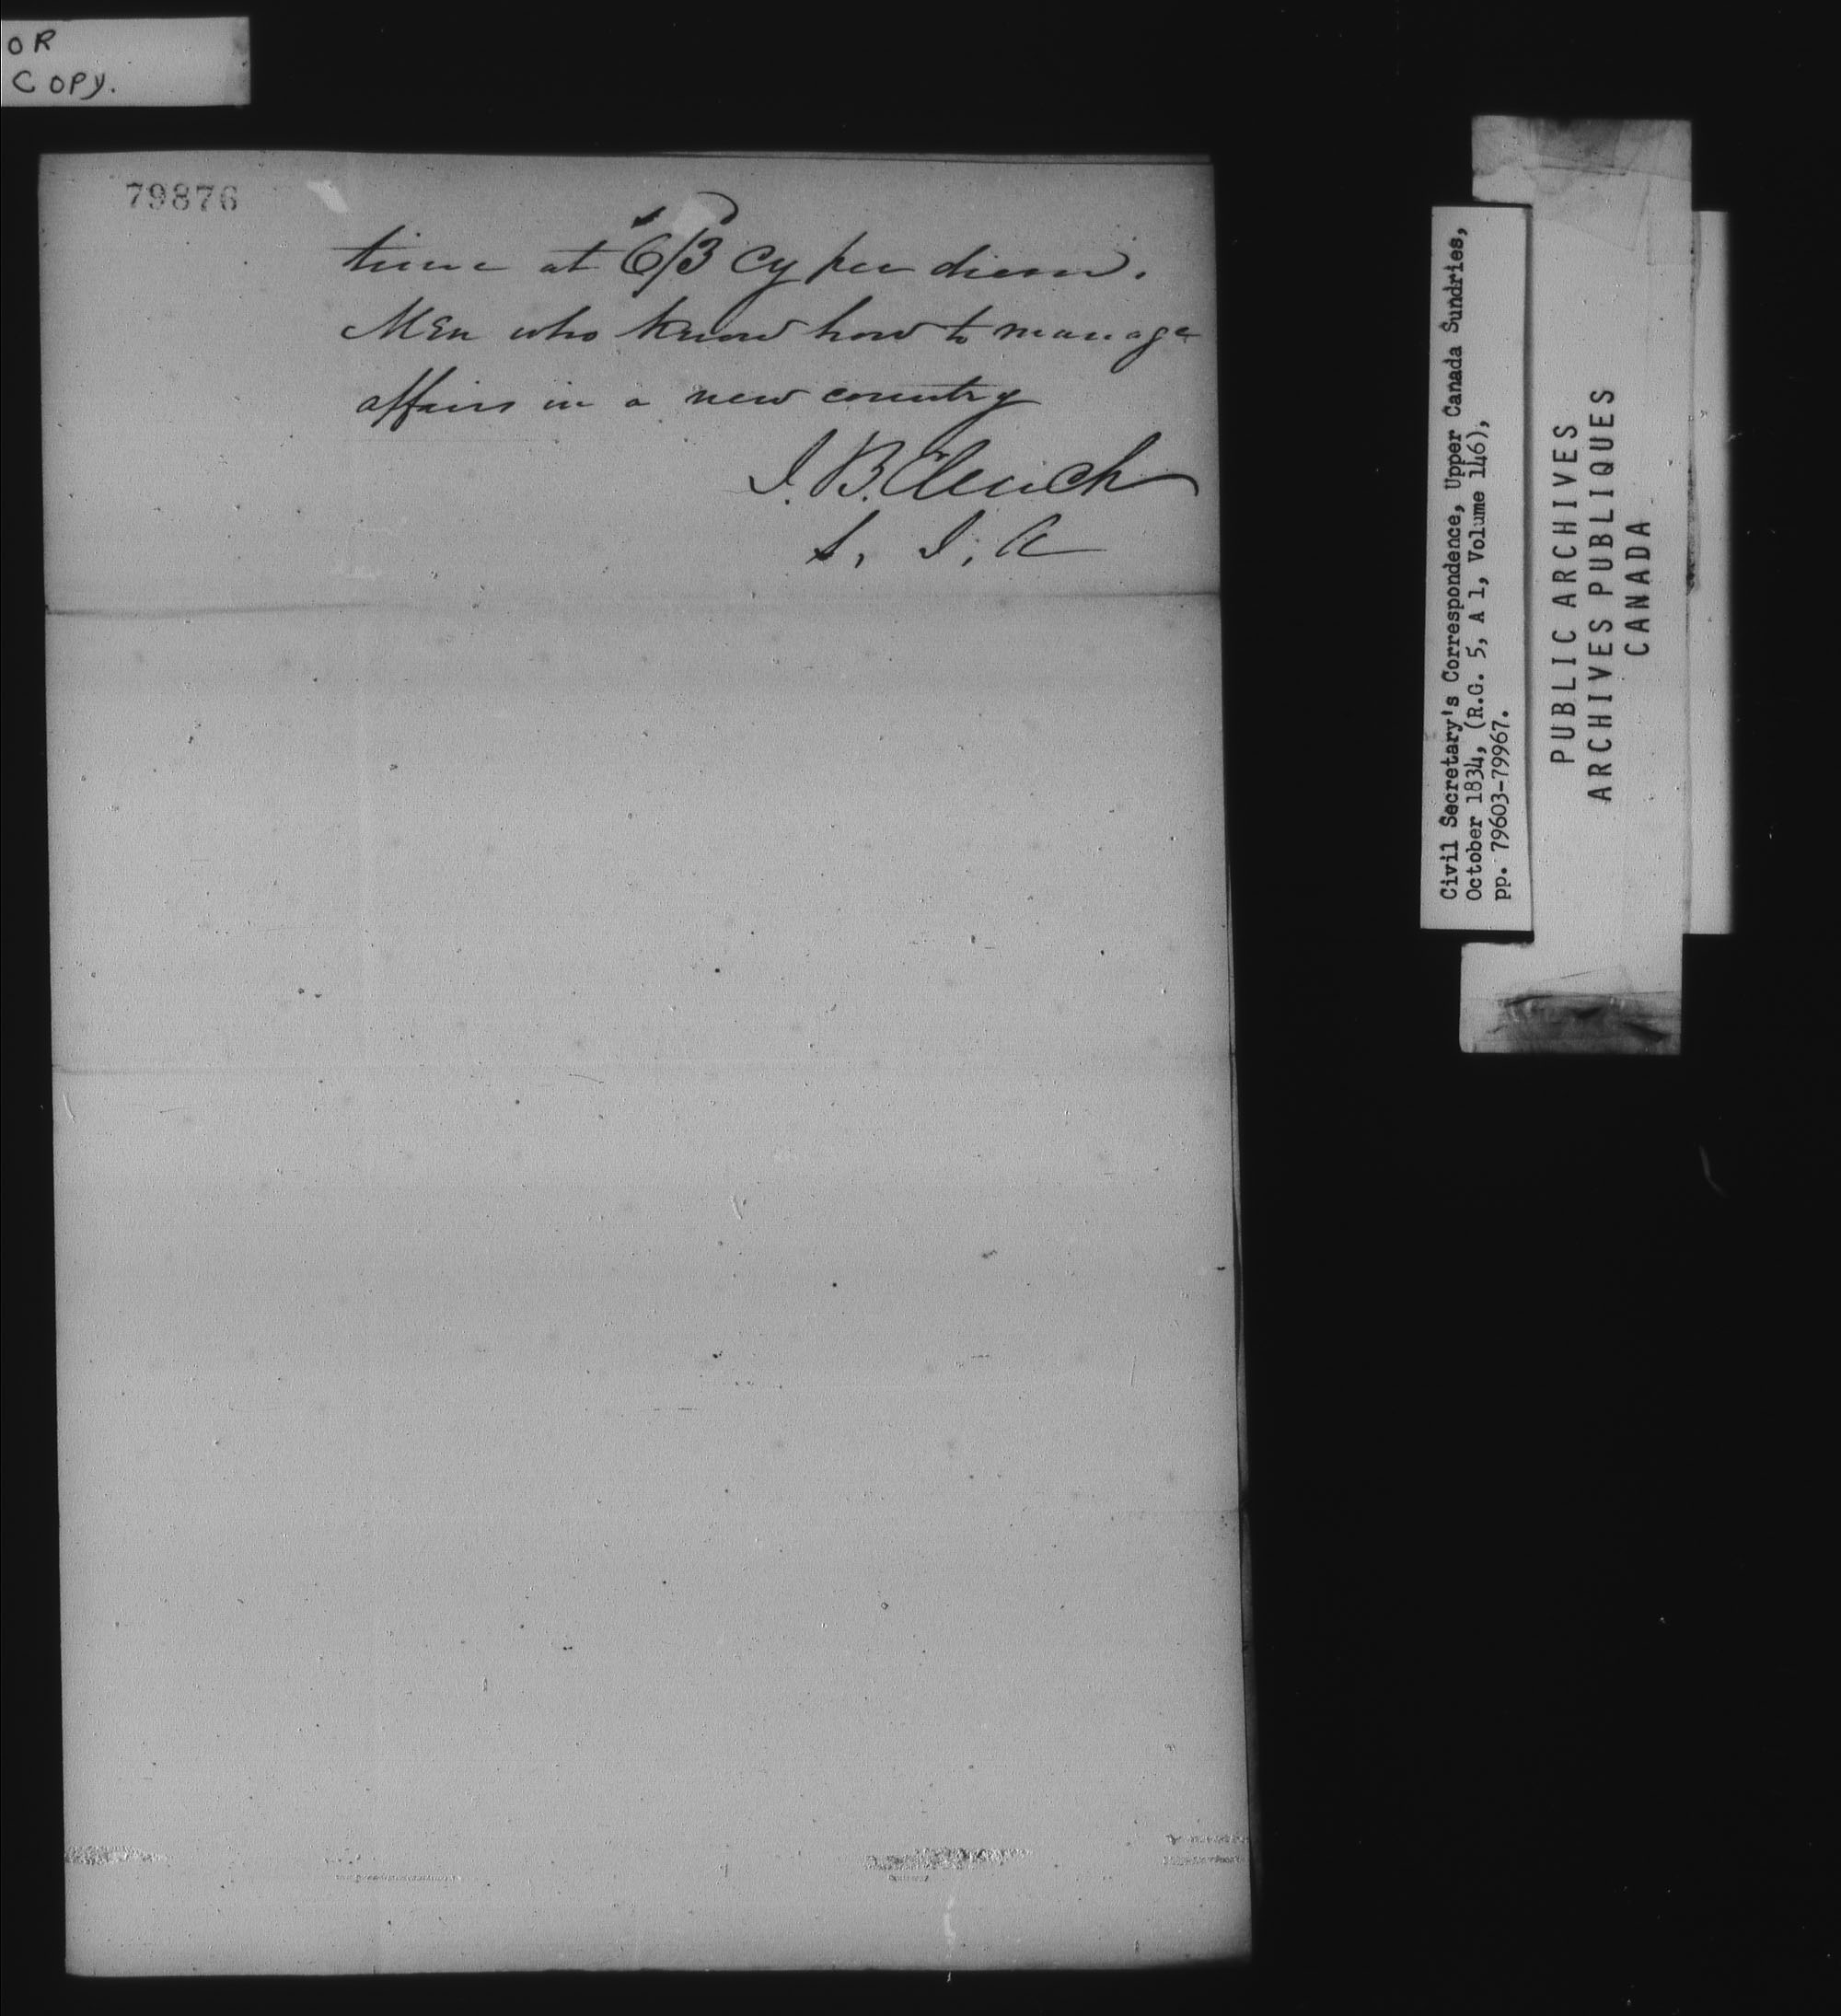 OR
COPY.
79876
time at 6/3 Cy per diem.
Men who know how to manage
affairs in a new country
J. B. Clench
S. I. A
Civil Secretary's Correspondence, Upper Canada Sundries,
October 1834, (R.G. 5, A 1, Volume 146),
pp. 79603-79967.
PUBLIC ARCHIVES
ARCHIVES PUBLIQUES
CANADA